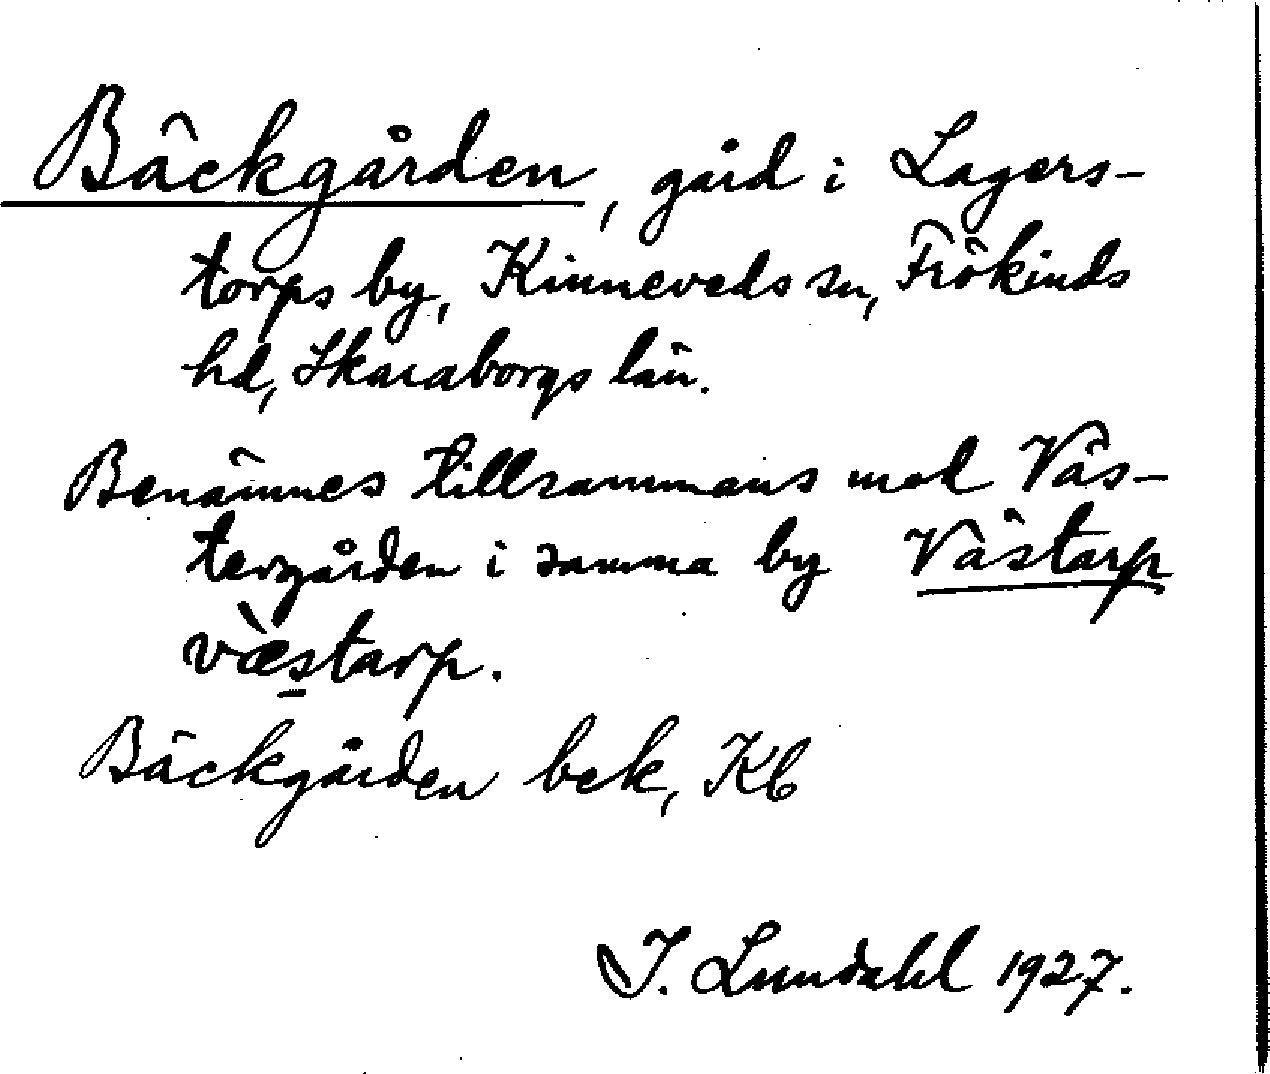 Bäckgården, gård i Lagers-
torps by, Kinneveds sn, Frökinds
hd, Skaraborgs län.
Benämnes tillsammans med Väs-
tergården i samma by Västarp
væ̀s̲tarp.
Bäckgården bek, Kb
I. Lundahl 1927.